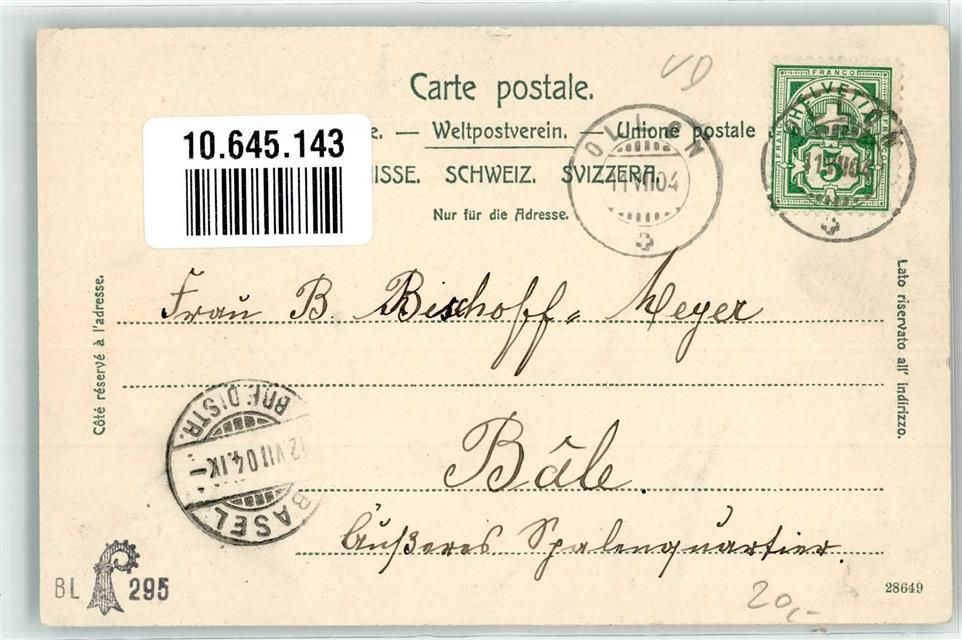 VD
Carte postale.
10.645.143
e. — Weltpostverein. — Unione postale
ISSE. SCHWEIZ. SVIZZERA.
Nur für die Adresse.
FRANCO
HELVETIA
5
OLLON
11 VII 04
OLLON
11 VII 04
Côté réservé à l'adresse.
Lato riservato all' indirizzo.
Frau B. Bischoff-Meyer
Bâle.
Äußeres Spalenquartier.
BRF. DISTR.
12 VII 04. IX–
BASEL
BL 295
28649
20,-